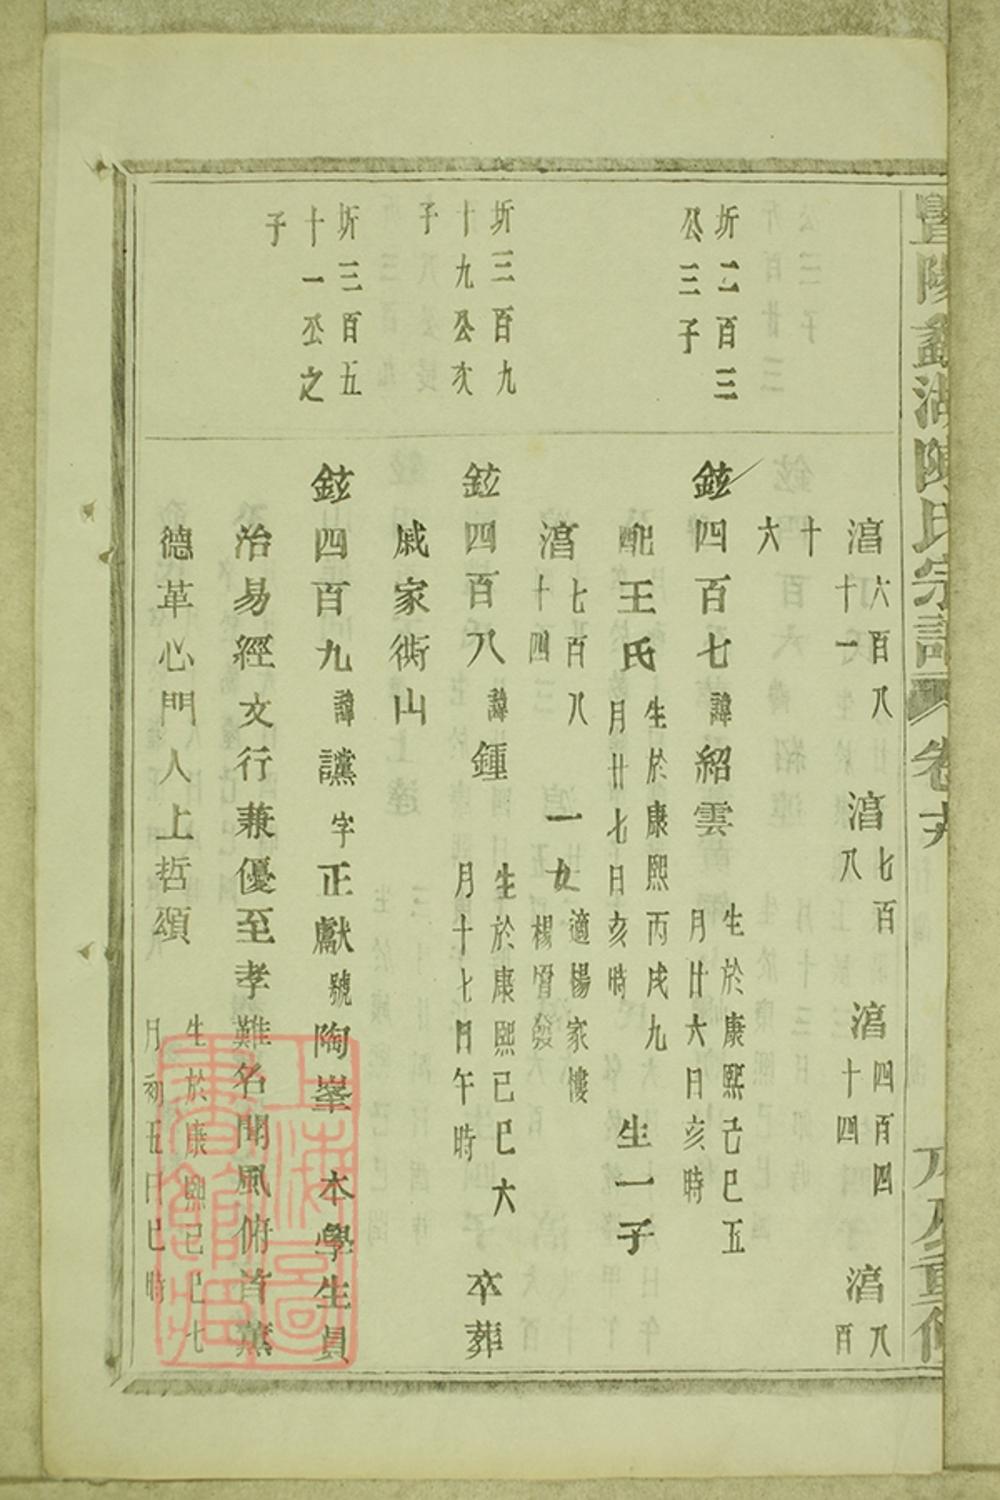 暨陽 湖陳氏宗譜 卷十六
滈六百八十一 滈七百八 滈四百四十四 滈八百
十六
圻二百三公三子
鉉四百七 諱紹雲 生於康熙己巳五月廿六日亥時
配王氏 生於康熙丙戌九月廿七日亥時 生一子
滈七百八十四 一女 適楊家樓楊 發
圻三百九十九公次子
鉉四百八 諱鍾 生於康熙己巳六月十七日午時 卒葬
戚家衖山
圻三百五十一公之子
鉉四百九 諱讜 字正獻 號陶峯 本學生員
治易經文行兼優至孝難名聞風俯首薰
德革心門人上哲頌 生於康熙己巳七月初五日巳時
上海圖書館藏